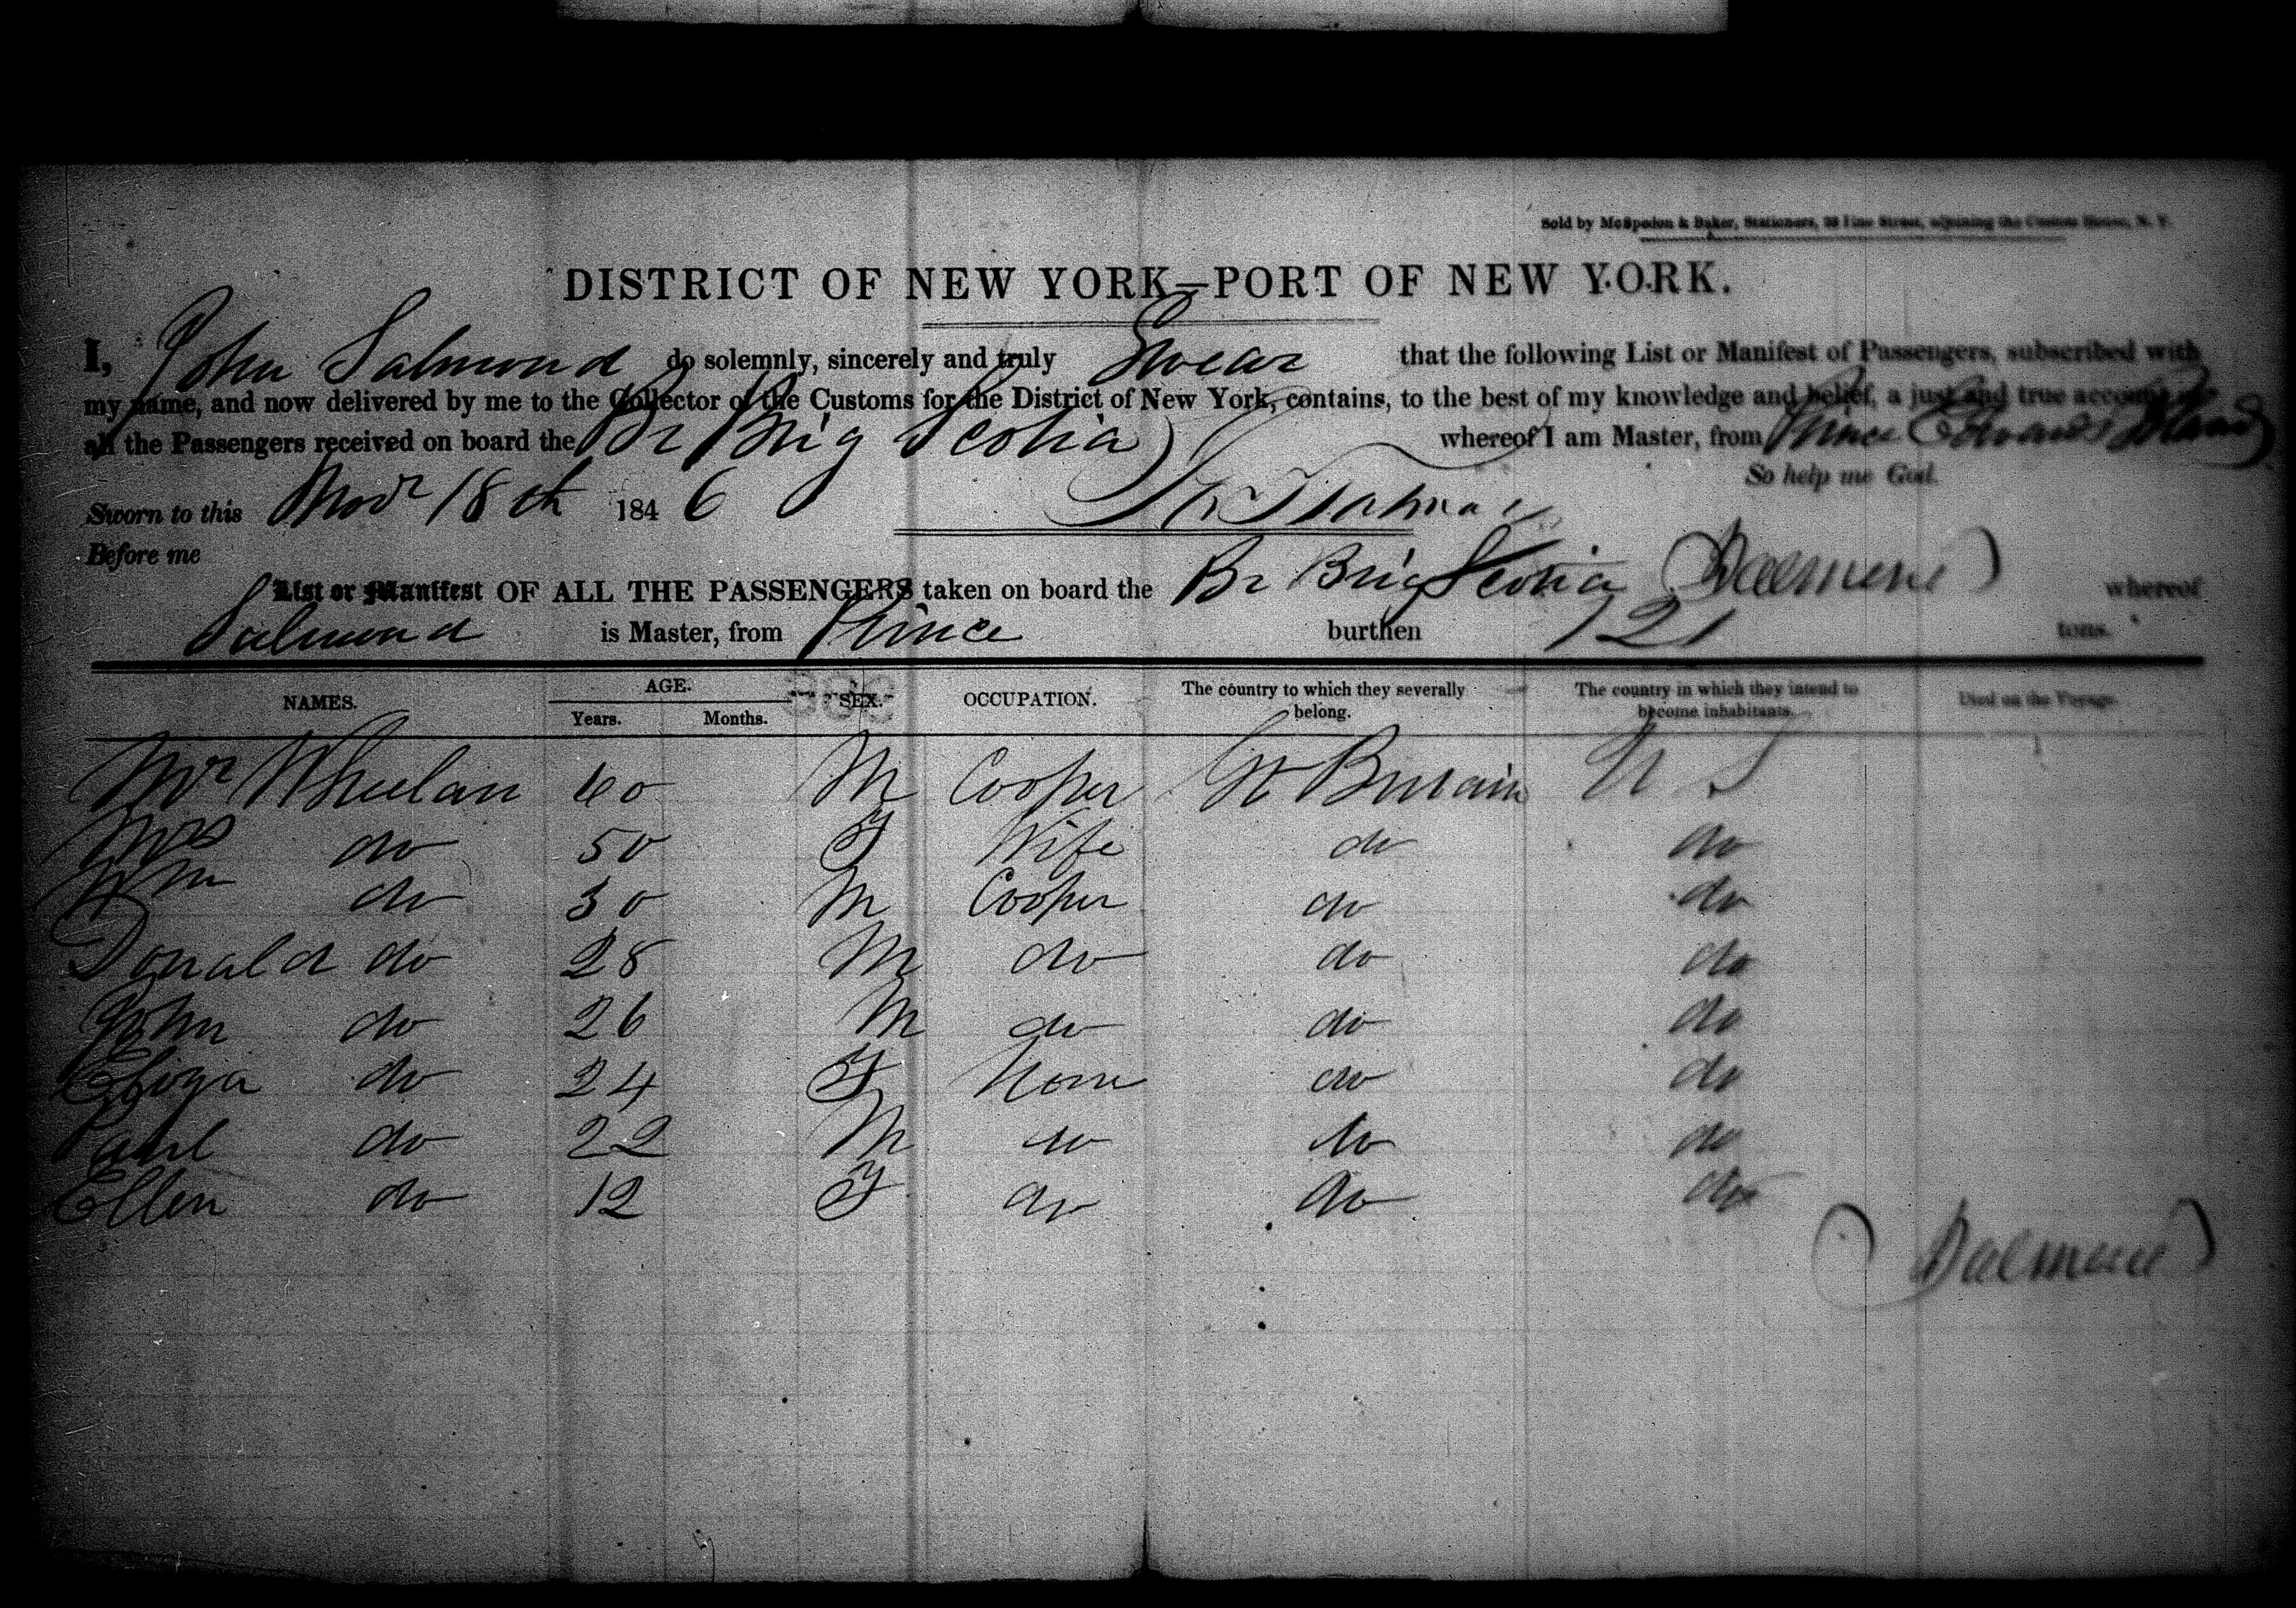 Sold by McSpedon & Baker, Stationers, 25 Pine Street, adjoining the Custom House, N. Y.
DISTRICT OF NEW YORK—PORT OF NEW YORK.
I, John Salmond do solemnly, sincerely and truly Swear that the following List or Manifest of Passengers, subscribed with
my name, and now delivered by me to the Collector of the Customs for the District of New York, contains, to the best of my knowledge and belief, a just and true account of
all the Passengers received on board the Br Brig Scotia whereof I am Master, from Prince Edwards Island
So help me God.
Sworn to this Novr 18th 1846
Before me
List or Manifest OF ALL THE PASSENGERS taken on board the Br Brig Scotia whereof
Salmond is Master, from Prince burthen 121 tons.
NAMES. AGE. SEX. OCCUPATION. The country to which they severally belong. The country in which they intend to become inhabitants. Died on the Voyage.
Years. Months.
Mr Wheelan 60 M Cooper Gt Britain U S
Mrs do 50 F Wife do do
Wm do 30 M Cooper do do
Donald do 28 M do do do
John do 26 M do do do
Eliza do 24 F None do do
Paul do 22 M do do do
Ellen do 12 F do do do